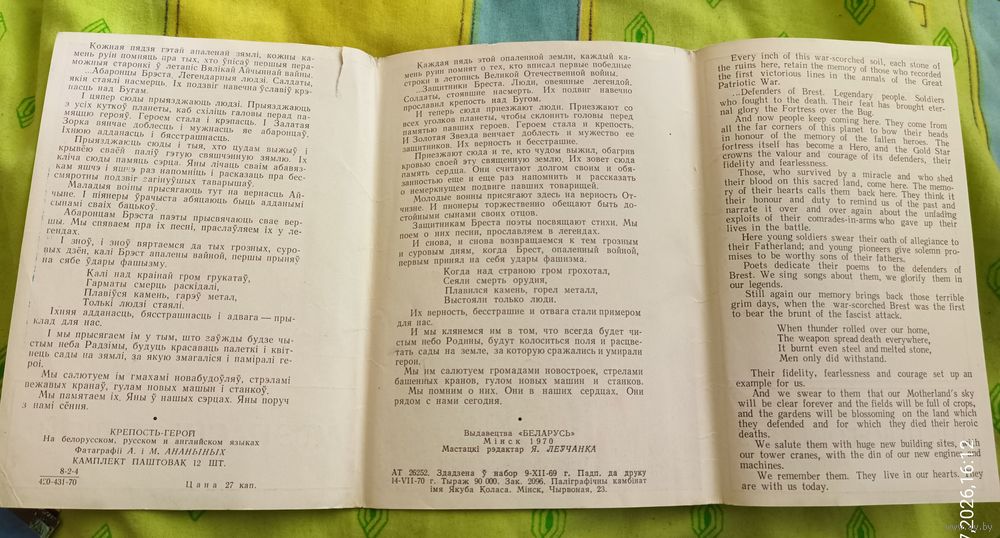 Кожная пядзя гэтай апаленай зямлі, кожны ка-
мень руін помняць пра тых, хто ўпісаў першыя пера-
можныя старонкі ў летапіс Вялікай Айчыннай вайны.
...Абаронцы Брэста. Легендарныя людзі. Салдаты,
якія стаялі насмерць. Іх подзвіг навечна ўславіў крэ-
пасць над Бугам.
І цяпер сюды прыязджаюць людзі. Прыязджаюць
з усіх куткоў планеты, каб схіліць галовы перад па-
мяццю герояў. Героем стала і крэпасць. І Залатая
Зорка вянчае доблесць і мужнасць яе абаронцаў.
Іхнюю адданасць і бясстрашнасць.
Прыязджаюць сюды і тыя, хто цудам выжыў і
крывёю сваёй паліў гэтую свяшчэнную зямлю. Іх
кліча сюды памяць сэрца. Яны лічаць сваім абавяз-
кам яшчэ і яшчэ раз напомніць і расказаць пра бес-
смяротны подзвіг загінуўшых таварышаў.
Маладыя воіны прысягаюць тут на вернасць Ай-
чыне. І піянеры ўрачыста абяцаюць быць адданымі
сынамі сваіх бацькоў.
Абаронцам Брэста паэты прысвячаюць свае вер-
шы. Мы спяваем пра іх песні, праслаўляем іх у ле-
гендах.
І зноў, і зноў вяртаемся да тых грозных, суро-
вых дзён, калі Брэст апалены вайной, першы прыняў
на сябе ўдары фашызму.
Калі над краінай гром грукатаў,
Гарматы смерць раскідалі,
Плавіўся камень, гарэў метал,
Толькі людзі стаялі.
Іхняя адданасць, бясстрашнасць і адвага — пры-
клад для нас.
І мы прысягаем ім у тым, што заўжды будзе чы-
стым неба Радзімы, будуць красаваць палеткі і квіт-
нець сады на зямлі, за якую змагаліся і паміралі ге-
роі.
Мы салютуем ім гмахамі новабудоўляў, стрэламі
вежавых кранаў, гулам новых машын і станкоў.
Мы памятаем іх. Яны ў нашых сэрцах. Яны поруч
з намі сёння.
КРЕПОСТЬ-ГЕРОЙ
На белорусском, русском и английском языках
Фатаграфіі А. і М. АНАНЬІНЫХ
КАМПЛЕКТ ПАШТОВАК 12 ШТ.
8-2-4
420-431-70
Цана 27 кап.
Каждая пядь этой опаленной земли, каждый ка-
мень руин помнят о тех, кто вписал первые победные
строки в летопись Великой Отечественной войны.
...Защитники Бреста. Люди, овеянные легендой.
Солдаты, стоявшие насмерть. Их подвиг навечно
прославил крепость над Бугом.
И теперь сюда приезжают люди. Приезжают со
всех уголков планеты, чтобы склонить головы перед
памятью павших героев. Героем стала и крепость.
И Золотая Звезда венчает доблесть и мужество ее
защитников. Их верность и бесстрашие.
Приезжают сюда и те, кто чудом выжил, обагрив
кровью своей эту священную землю. Их зовет сюда
память сердца. Они считают долгом своим и обя-
занностью еще и еще раз напомнить и рассказать
о немеркнущем подвиге павших товарищей.
Молодые воины присягают здесь на верность От-
чизне. И пионеры торжественно обещают быть до-
стойными сынами своих отцов.
Защитникам Бреста поэты посвящают стихи. Мы
поем о них песни, прославляем в легендах.
И снова, и снова возвращаемся к тем грозным
и суровым дням, когда Брест, опаленный войной,
первым принял на себя удары фашизма.
Когда над страною гром грохотал,
Сеяли смерть орудия,
Плавился камень, горел металл,
Выстояли только люди.
Их верность, бесстрашие и отвага стали примером
для нас.
И мы клянемся им в том, что всегда будет чи-
стым небо Родины, будут колоситься поля и расцве-
тать сады на земле, за которую сражались и умирали
герои.
Мы им салютуем громадами новостроек, стрелами
башенных кранов, гулом новых машин и станков.
Мы помним о них. Они в наших сердцах. Они
рядом с нами сегодня.
Выдавецтва «БЕЛАРУСЬ»
Мінск 1970
Мастацкі рэдактар Я. ЛЕЎЧАНКА
АТ 26252. Здадзена ў набор 9-XII-69 г. Падп. да друку
14-VII-70 г. Тыраж 90 000. Зак. 2096. Паліграфічны камбінат
імя Якуба Коласа. Мінск, Чырвоная, 23.
Every inch of this war-scorched soil, each stone of
the ruins here, retain the memory of those who recorded
the first victorious lines in the annals of the Great
Patriotic War.
...Defenders of Brest. Legendary people. Soldiers
who fought to the death. Their feat has brought eter-
nal glory the Fortress over the Bug.
And now people keep coming here. They come from
all the far corners of this planet to bow their heads
in honour of the memory of the fallen heroes. The
fortress itself has become a Hero, and the Gold Star
crowns the valour and courage of its defenders, their
fidelity and fearlessness.
Those, who survived by a miracle and who shed
their blood on this sacred land, come here. The memo-
ry of their hearts calls them back here. They think it
their honour and duty to remind us of the past and
narrate it over and over again about the unfading
exploits of their comrades-in-arms who gave up their
lives in the battle.
Here young soldiers swear their oath of allegiance to
their Fatherland; and young pioneers give solemn pro-
mises to be worthy sons of their fathers.
Poets dedicate their poems to the defenders of
Brest. We sing songs about them, we glorify them in
our legends.
Still again our memory brings back those terrible
grim days, when the war-scorched Brest was the first
to bear the brunt of the fascist attack.
When thunder rolled over our home,
The weapon spread death everywhere,
It burnt even steel and melted stone,
Men only did withstand.
Their fidelity, fearlessness and courage set up an
example for us.
And we swear to them that our Motherland's sky
will be clear forever and the fields will be full of crops,
and the gardens will be blossoming on the land which
they defended and for which they died their heroic
deaths.
We salute them with huge new building sites, with
our tower cranes, with the din of our new engines and
machines.
We remember them. They live in our hearts. They
are with us today.
7,2026,16:12
www.ay.by